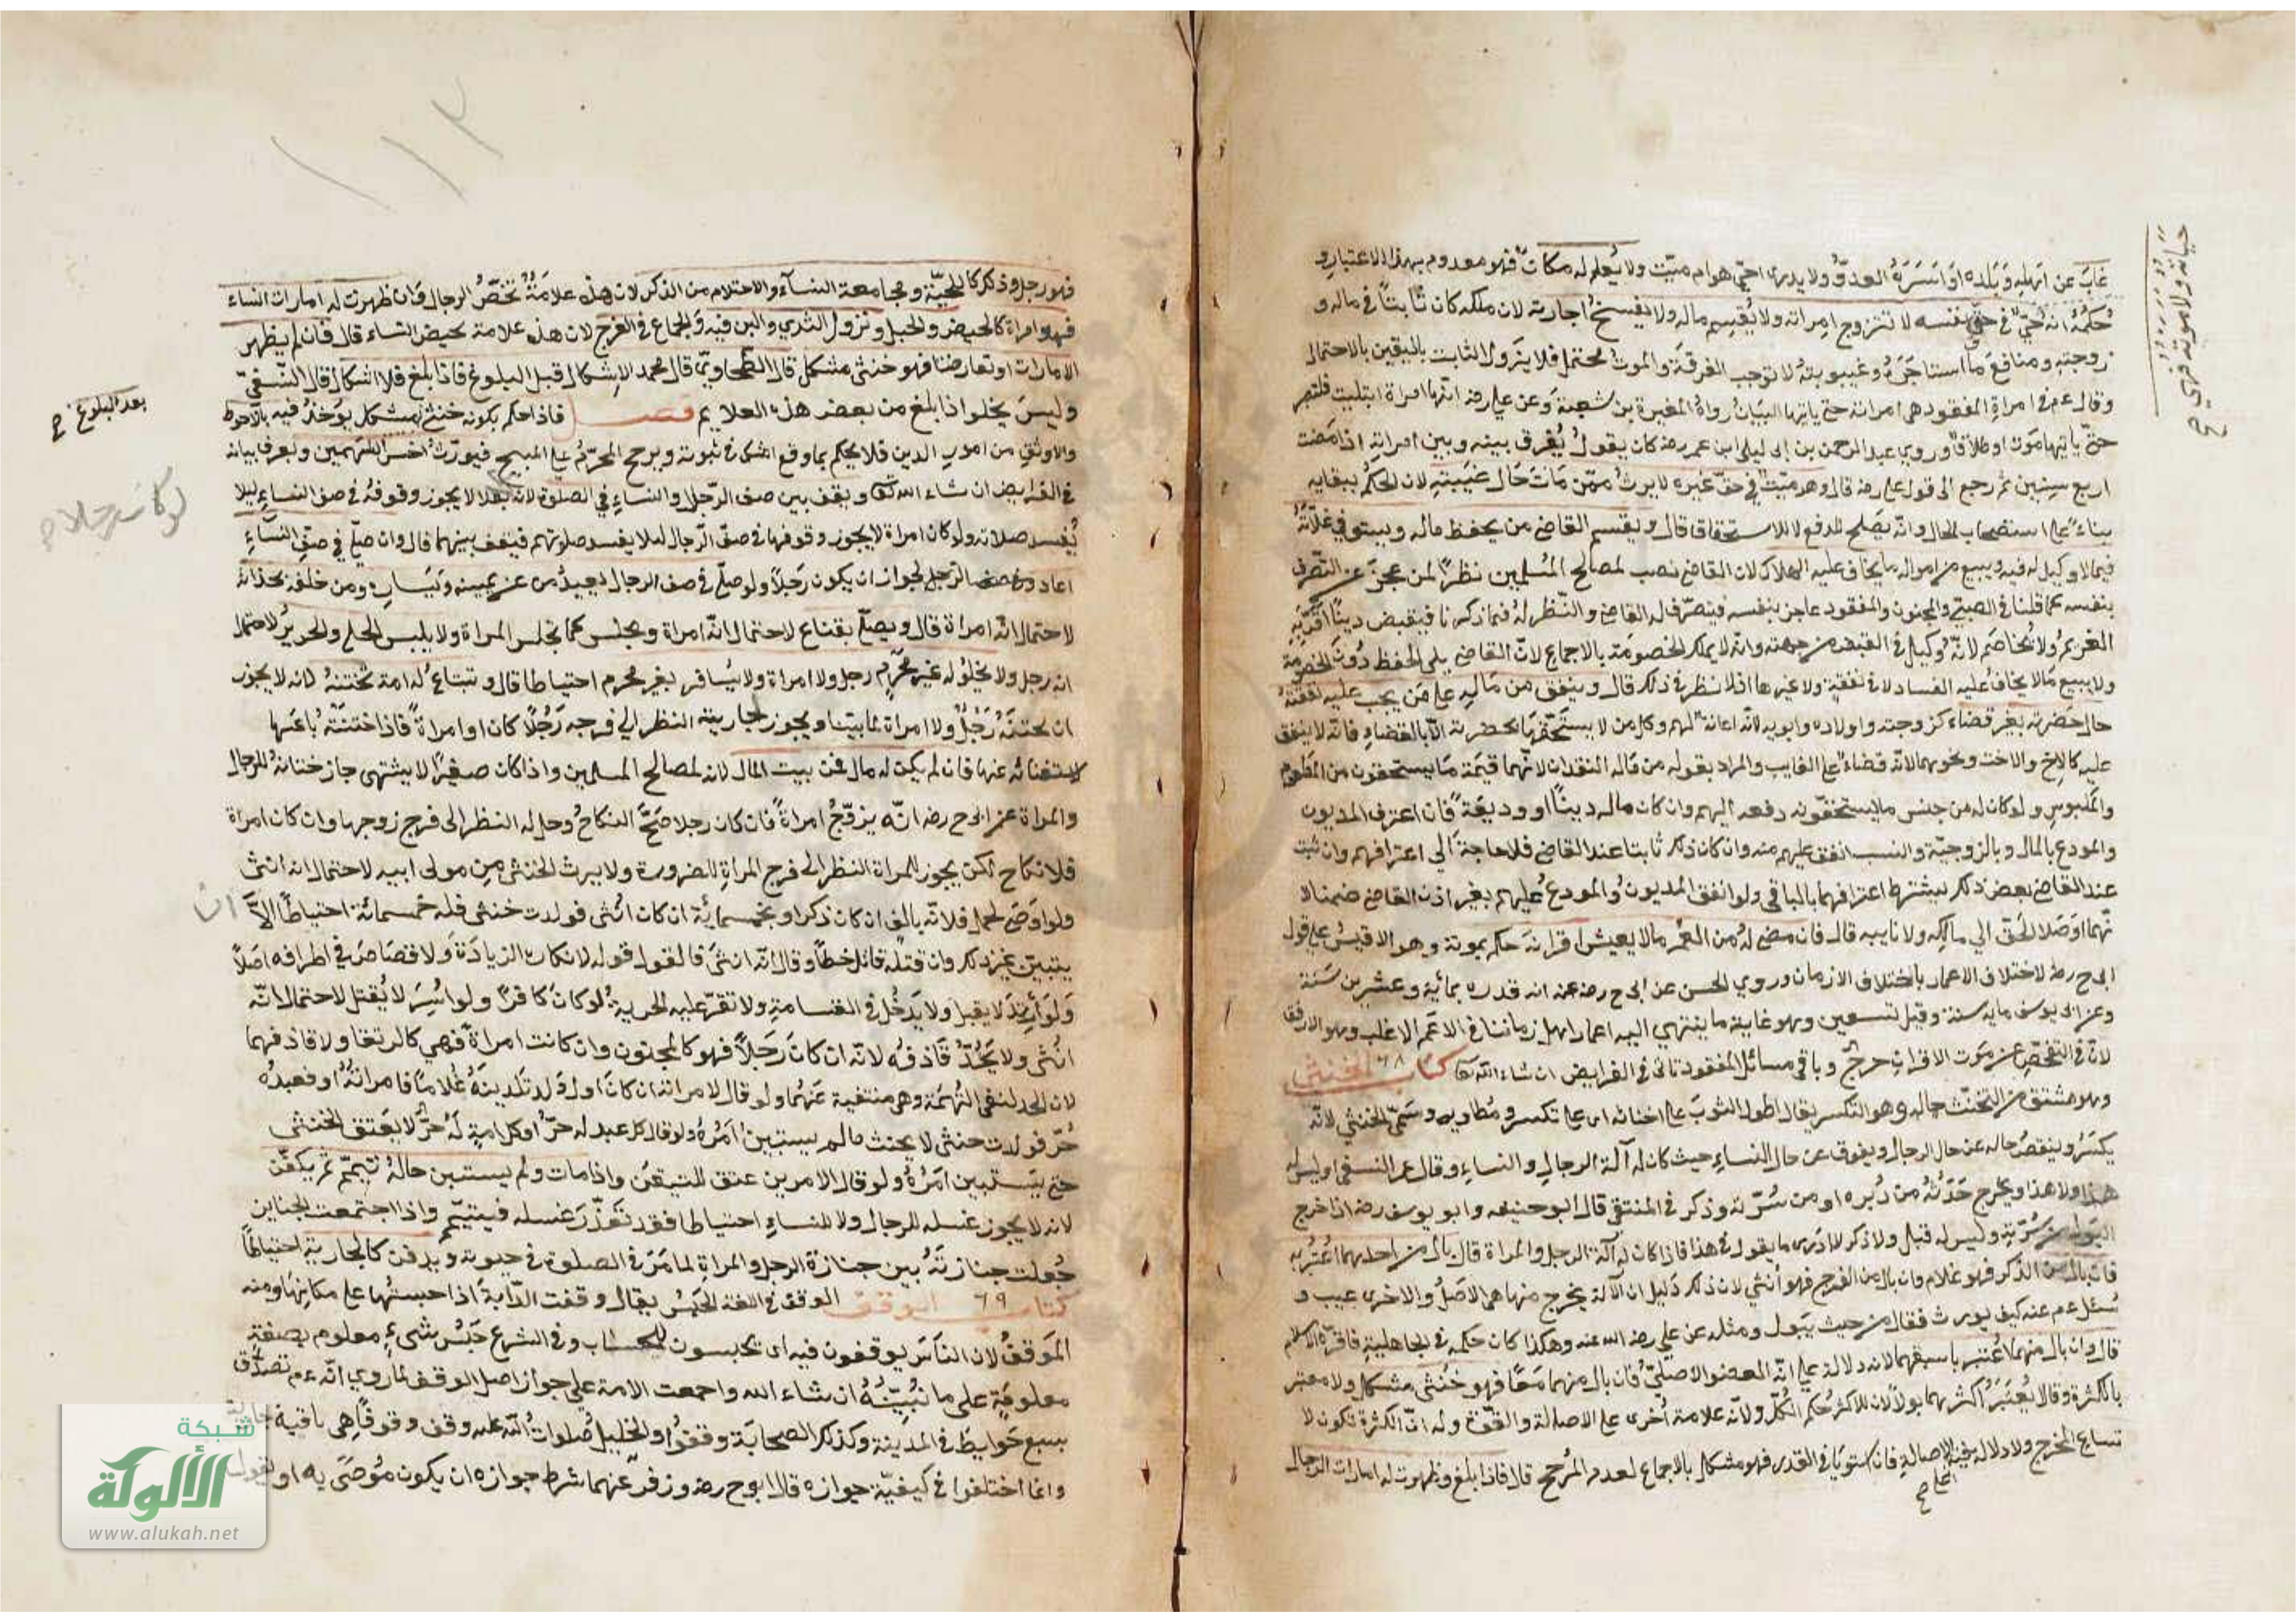 غاب عن اهله وبلده او اسره العدو ولا يدرى احي هو ام ميت ولا يعلم له مكان فهو معدوم بهذا الاعتبار و
حكمه انه حي في حق نفسه لا تتزوج امراته ولا يقسم ماله ولا يفسخ اجارته لان ملكه كان ثابتا في ماله و
زوجته ومنافع ما استاجره وغيبوبته لا توجب الفرقة والموت محتمل فلا يزول الثابت باليقين بالاحتمال
وقال عم في امراة المفقود هي امراته حتى ياتيها البيان رواه المغيرة بن شعبة وعن علي رضه انها امراة ابتليت فلتصبر
حتى ياتيها موت او طلاق وروي عبد الرحمن بن ابى ليلى ابن عمر رضه كان يقول يفرق بينه وبين امراته اذا مضت
اربع سنين ثم رجع الى قول علي رضه قال وهو ميت في حق غيره لا يرث ممن مات حال غيبته لان الحكم ببقايه
بناء على استصحاب الحال وانه يصلح للدفع لا للاستحقاق قال ويقسم القاضي من يحفظ ماله ويستوفي غلاته
فيما لا وكيل له فيه ويبيع من امواله ما يخاف عليه الهلاك لان القاضي نصب لمصالح المسلمين نظرا لمن عجز عن التصرف
بنفسه كما قلنا في الصبي والمجنون والمفقود عاجز بنفسه فيتصرف له القاضي والنظر له فيما ذكرنا فيقبض دينا اقر به
الغريم ولا يخاصم لانه وكيل في القبض من جهته وانه لا يملك الخصومة بالاجماع لان القاضي يلى الحفظ دون الخصومة
ولا يبيع ما لا يخاف عليه الفساد لا في نفقة ولا غيرها اذ لا نظر في ذلك قال وينفق من ماله على من يجب عليه نفقته
حال حضرته بغير قضاء كزوجته واولاده وابويه لانه اعانة لهم وكل من لا يستحقها بحضرته الا بالقضاء فانه لا ينفق
عليه كالاخ والاخت ونحوهما لانه قضاء على الغايب والمراد بقوله من ماله النقدان لانهما قيمة ما يستحقون من المطعوم
والملبوس ولو كان له من جنس ما يستحقونه دفعه اليهم وان كان ماله دينا او وديعة فان اعترف المديون
والمودع بالمال وبالزوجية والنسب انفق عليهم منه وان كان ذلك ثابتا عند القاضي فلا حاجة الي اعترافهم وان ثبت
عند القاضي بعض ذلك يشترط اعترافهما بالباقي ولو انفق المديون والمودع عليهم بغير اذن القاضي ضمنا لا
نهما اوصلا الحق الي مالكه ولا نايبه قال فان مضى له من العمر ما لا يعيش اقرانه حكم بموته وهو الاقيس على قول
ابى ح رضه لاختلاف الاعمار باختلاف الازمان وروي الحسن عن ابى ح رضه انه قدره بمائة وعشرين سنة
وعن ابى يوسف ماية سنة وقيل تسعين وهو غاية ما ينتهي اليه اعمار اهل زماننا في الاعم الاغلب وهو الارفق
لان في التفحص عن موت الاقران حرج وباقي مسائل المفقود تاتي في الفرايض ان شاء الله تعا كتاب ٦٨ الخنثى
وهو مشتق من التخنث وهو التكسر يقال اطو الثوب على اخنائه اى على تكسره ومطاويه وسمي الخنثي لانه
يكسر وينقص حاله عن حال الرجال ويفوق عن حال النساء حيث كان له آلة الرجال والنساء وقال النسفي اوليس له
هذا ولا هذا ويخرج حدثه من دبره او من سرته وذكر في المنتقى قال ابو حنيفه وابو يوسف رضه اذا خرج
البول من سرته وليس له قبل ولا ذكر لا ادرى ما يقول في هذا فاذا كان له آلة الرجل والمراة قال بال من احديهما اعتبر به
فان بال من الذكر فهو غلام وان بال من الفرج فهو أنثي لان ذلك دليل ان الآلة يخرج منها هي الاصل والاخرى عيب و
سئل عم عنه كيف يورث فقال من حيث يبول ومثله عن علي رضه الله عنه وهكذا كان حكمه في الجاهلية فاقره الاسلام
قال وان بال منهما اعتبر باسبقهما لانه دلالة على انه العضو الاصلي فان بال منهما معا فهو خنثى مشكل ولا معتبر
بالكثرة وقالا يعتبر أكثرهما بولا لان للاكثر حكم الكل ولانه علامة أخرى على الاصالة والقوة وله ان الكثرة تكون لا
تساع المخرج ولا دلالة فيه على الاصالة فان استويا في القدر فهو مشكل بالاجماع لعدم المرجح قال فاذا بلغ وظهرت له امارات الرجال
فهو رجل وذكر كاللحية ومجامعة النسآء والاحتلام من الذكر لان هذه علامة تختص الرجال وان ظهرت له امارات النساء
فهو امراة كالحيض والحبل ونزول الثدي واللبن فيه والجماع في الفرج لان هذه علامة تحيض النساء قال فان لم يظهر
الامارات او تعارضتا فهو خنثى مشكل قال الطحاوي قال محمد الاشكال قبل البلوغ فاذا بلغ فلا اشكال قال النسفي
وليس يخلوا اذا بلغ من بعض هذه العلايم فصل فاذا حكم بكونه خنثى مشكل يوخذ فيه بالاحوط
بعد البلوغ صح
والاوثق من امور الدين فلا يحكم بما وقع الشك في ثبوته ويرجح المحرم على المبيح فيورث اخس السهمين ويعرف بيانه
في الفرايض ان شاء الله تعا ويقف بين صف الرجال والنساء في الصلوة لانه لا يجوز وقوفه في صف النساء ليلا
لو كان رجلا صح
يفسد صلاته ولو كان امراة لا يجوز وقوفها في صف الرجال لئلا يفسد صلوتهم فيقف بينهما قال وان صلي في صف النسآء
اعاد لجواز ان يكون رجلا ولو صلى في صف الرجال يعيد من عن يمينه ويساره ومن خلفه بحذائه
لاحتمال انه امراة قال ويصلي بقناع لاحتمال انه امراة ويجلس كما تجلس المراة ولا يلبس الحلي والحرير لاحتمال
انه رجل ولا يخلو له غير محرم رجل ولا امراة ولا يسافر بغير محرم احتياطا قال وتبتاع له امة تختنه لانه لا يجوز
ان يختنه رجل ولا امراة لما بينا ويجوز لجاريته النظر الي فرجه رجلا كان او امراة فاذا ختنته باعها
لاستغنائه عنها فان لم يكن له مال فمن بيت المال لانه لمصالح المسلمين واذا كان صغيرا لا يشتهى جاز ختانه للرجال
والمراة عن ابى ح رضه انه يزوج امراة فان كان رجلا صح النكاح وحل له النظر الى فرج زوجها وان كان امراة
فلا نكاح لكن يجوز للمراة النظر الى فرج المراة للضرورة ولا يرث الخنثى من مولى ابيه لاحتمال انه انثى
ولو اوصى لحمل فلانة بالف ان كان ذكرا وبخمسمائة ان كان انثى فولدت خنثى فله خمسمائة احتياطا الا ان
يتبين غير ذلك وان قتله قاتل خطأ وقال انه انثى فالقول قوله لانكاره الزيادة ولا قصاص في اطرافه اصلا
ولو ارتد لا يقبل ولا يدخل في القسامة ولا تقر عليه الجزية لو كان كافرا ولو اسر لا يقتل لاحتمال انه
انثى ولا يحد قاذفه لانه ان كان رجلا فهو كالمجنون وان كانت امراة فهي كالرتقا ولا قاذفهما
لان الحد لنفي التهمة وهي منتفية عنهما ولو قال لامراته ان كان اول ولد تلدينه غلاما فامراته او فعبده
حر فولدت خنثى لا يحنث ما لم يستبين امره ولو قال كل عبد له حر او كل امة له حر لا يعتق الخنثى
حتى يستبين امره ولو قال الامرين عتق للتيقن واذا مات ولم يستبين حاله تيمم ثم يكفن
لانه لا يجوز غسله للرجال ولا للنساء احتياطا فقد تعذر غسله فيتيمم واذا اجتمعت الجنايز
جعلت جنازته بين جنازة الرجل والمراة لما مر في الصلوة في حيوته ويدفن كالجارية احتياطا
كتاب ٦٩ الوقف الوقف في اللغة الحبس يقال وقفت الدابة اذا حبستها على مكانها ومنه
الموقف لان الناس يوقفون فيه اى يحبسون للحساب وفي الشرع حبس شيء معلوم بصفة
معلومة على ما نبينه ان شاء الله واجمعت الامة علي جواز اصل الوقف لما روي انه عم تصدق
بسبع حوايط في المدينة وكذلك الصحابة وقفوا والخليل صلوات الله عليه وقف وقوفا هي باقية جارية
وانما اختلفوا في كيفية جوازه قال ابو ح رضه وزفر عنهما شرط جوازه ان يكون موصى به او يقول
١١٢
شبكة
الألوكة
www.alukah.net